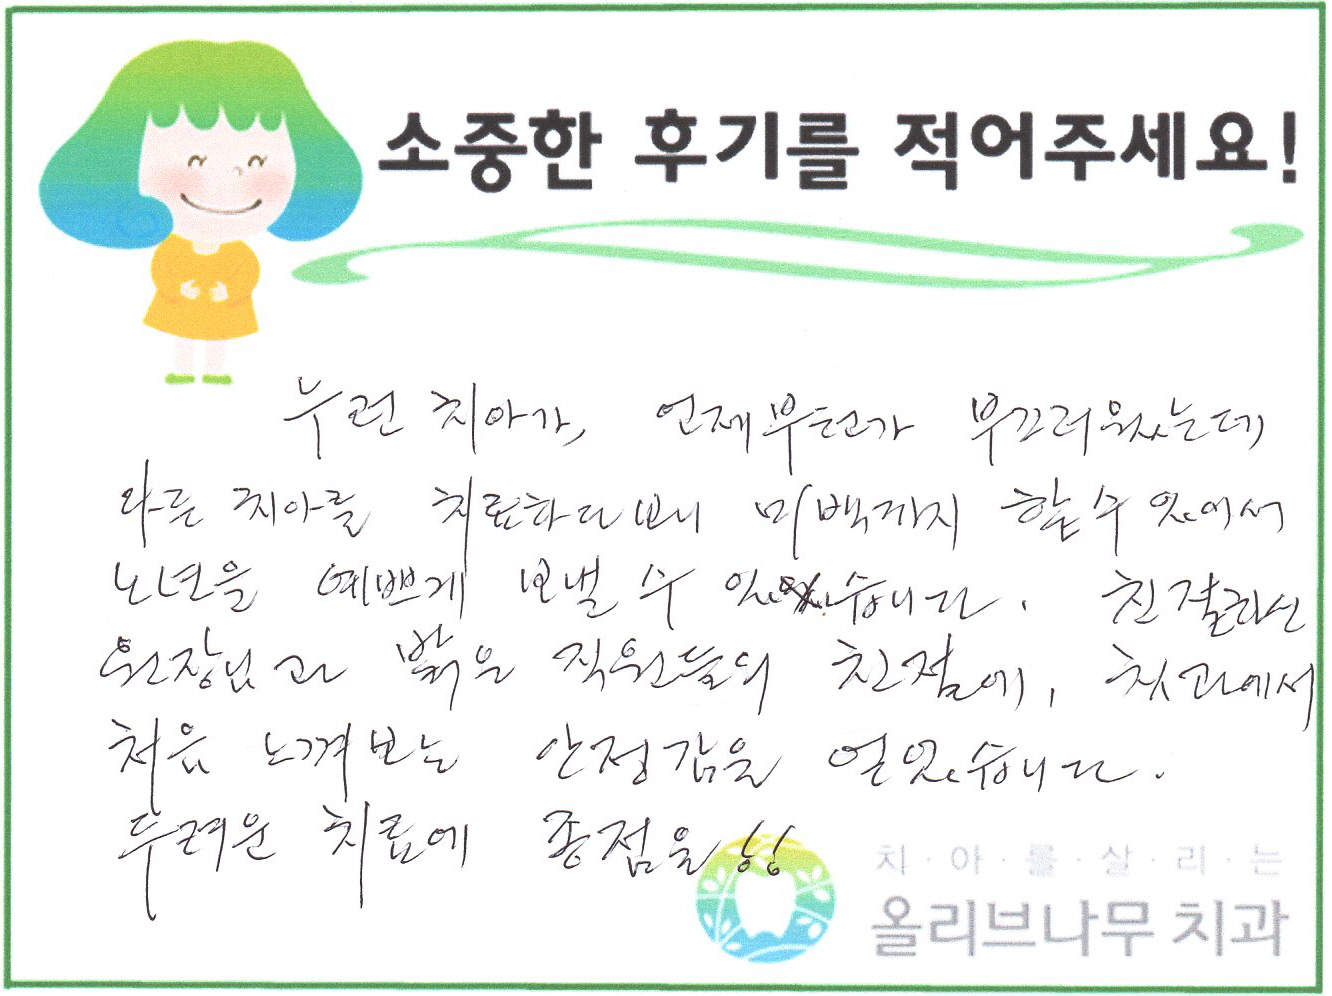 소중한 후기를 적어주세요!
누런 치아가, 언제부턴가 부끄러웠는데
다른 치아를 치료하다보니 미백까지 할 수 있어서
노년을 예쁘게 보낼 수 있습니다. 친절하신
원장님과 밝은 직원들의 친절에, 칫과에서
처음 느껴보는 안정감을 얻었습니다.
두려운 치료에 종점을!!
치·아·를·살·리·는
올리브나무 치과